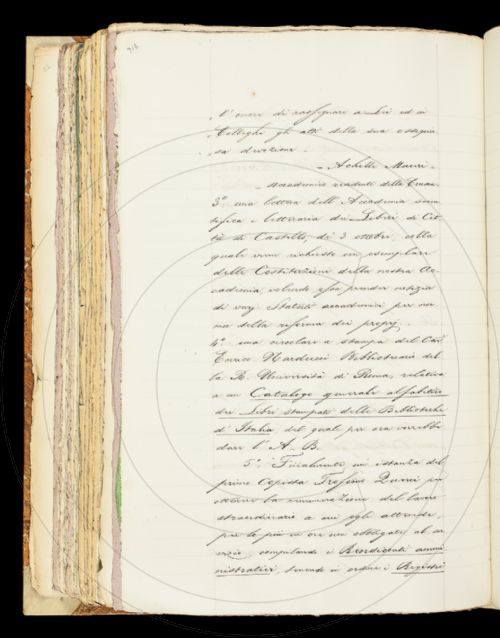 l'onore di rassegnare a Lei ed ai
Colleghi gli atti della sua ossequio
sa devozione
Achille Mauri
accademia
3° una lettera dell'Accademia scien
tifica letteraria dei Liberi di Cit
tà di Castello, di 3 ottobre, colla
quale viene richiesto un esemplare
delle Costituzioni della nostra Ac
cademia, volendo essa prender notizia
di varj Statuti accademici per nor
ma della riforma dei proprj.
4° una circolare a stampa del Cav.
Enrico Narducci Bibliotecario del
la R. Università di Roma, relativa
a un Catalogo generale alfabetico
dei Libri stampati delle Biblioteche
d'Italia del quale per ora verrebbe
dare l'A-B.
5° Finalmente un'istanza del
primo Copista per
ottenere la remunerazione del lavoro
straordinario a cui egli attende,
per lo più in ore non obbligate al ser
vizio, compilando i ammi
nistrativi, tenendo in ordine i Registri